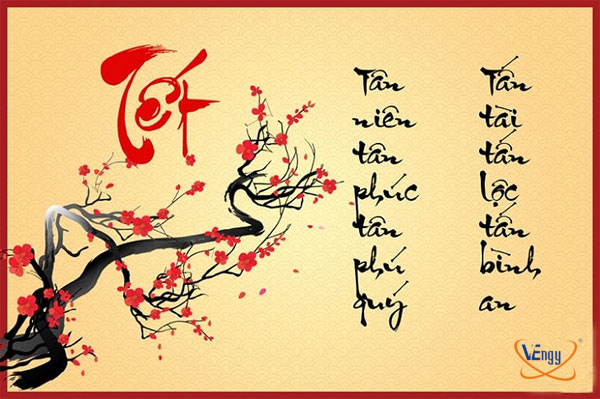 Tết
Tân
niên
tân
phúc
tân
phú
quý
Tấn
tài
tấn
lộc
tấn
bình
an
VEngy
®